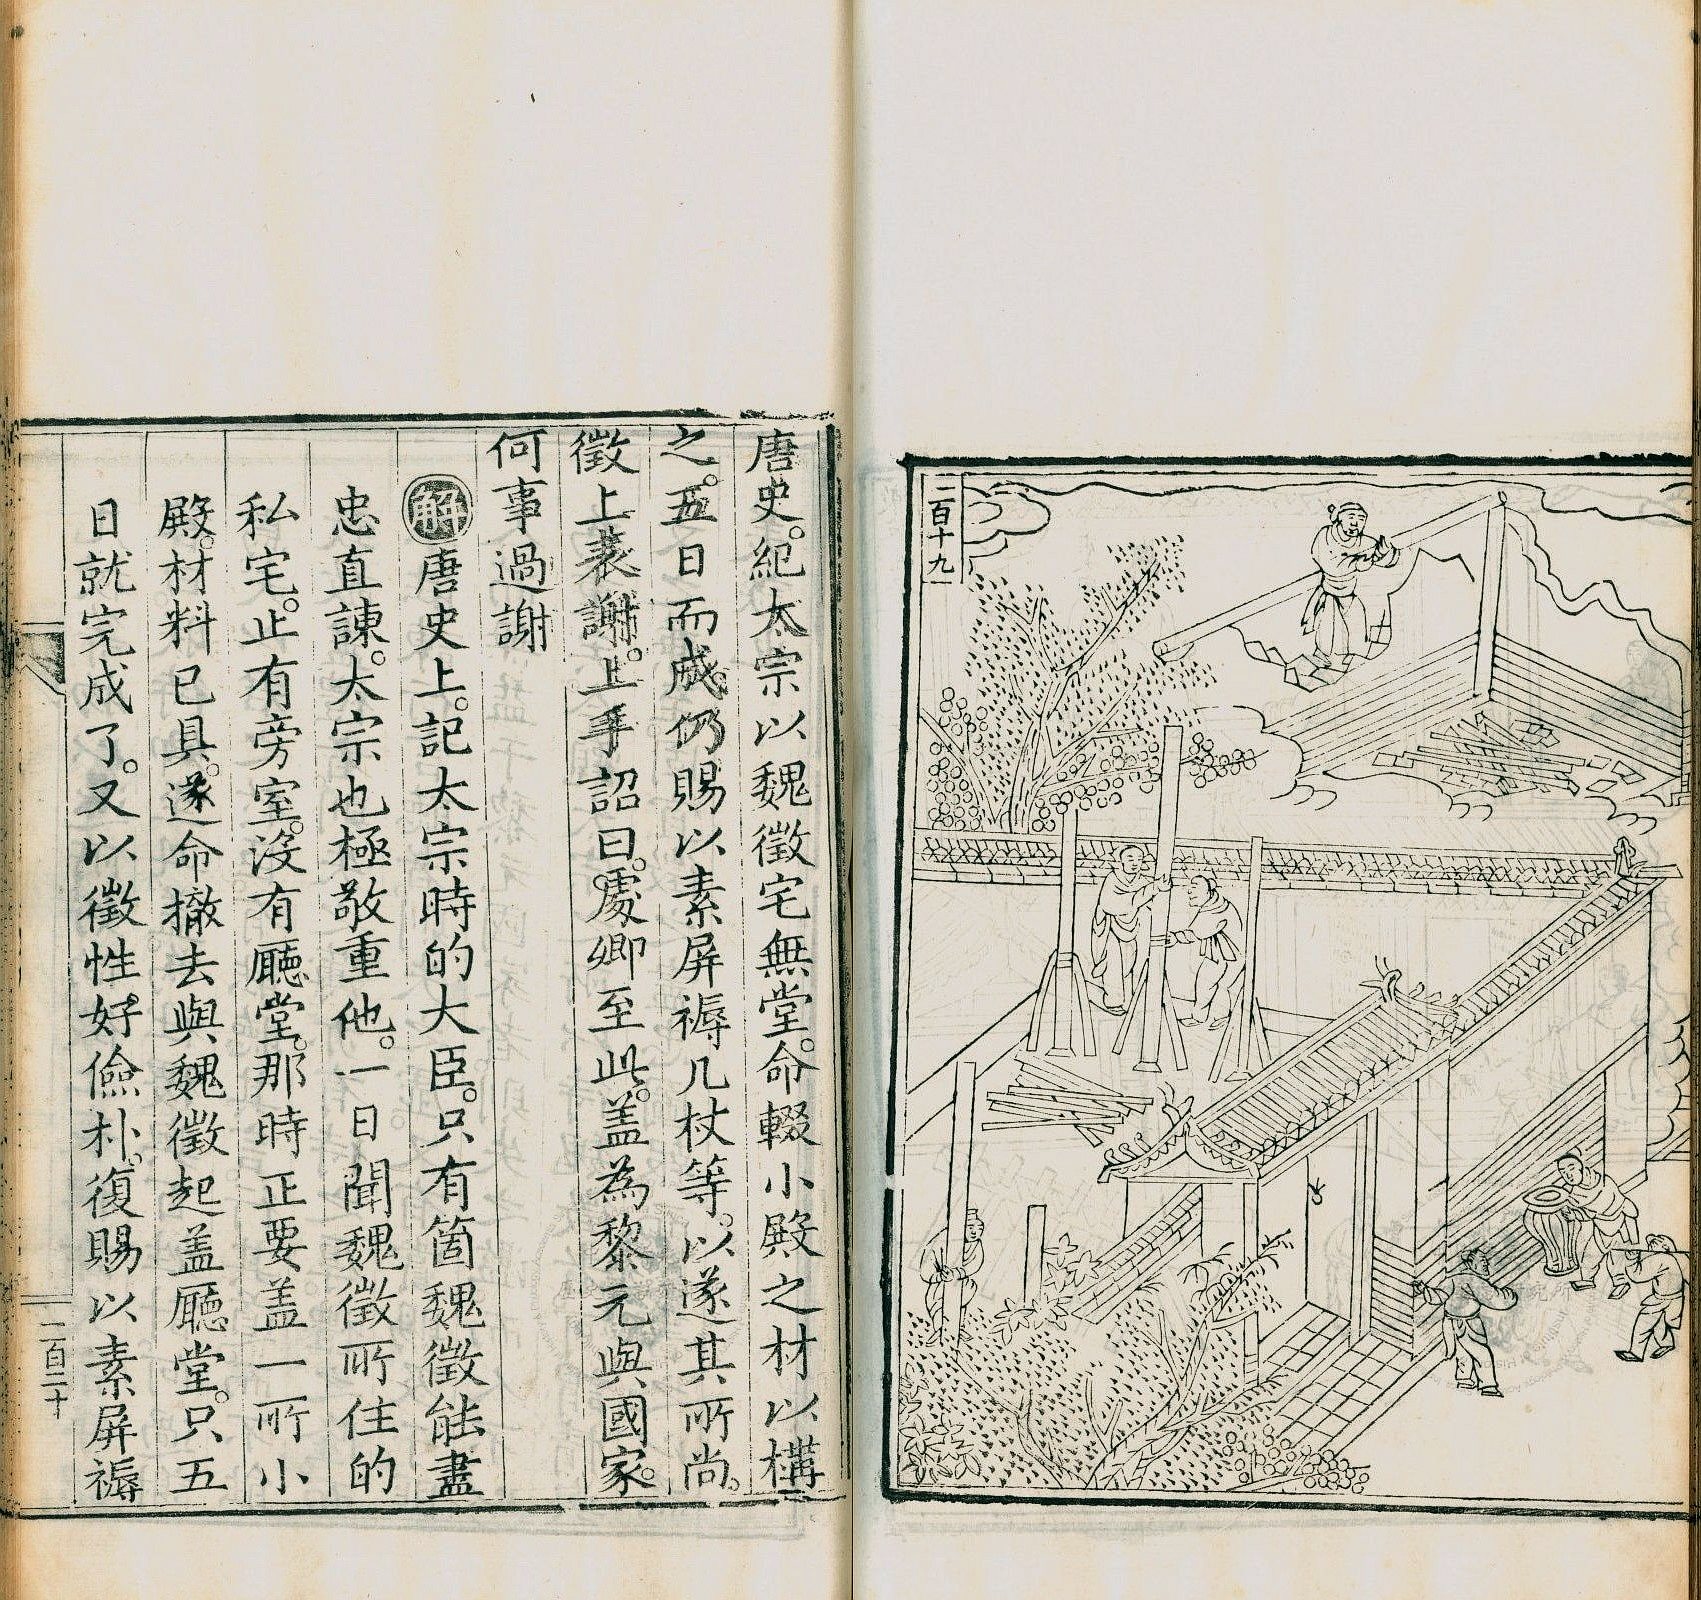 二百十九
唐史。紀太宗以魏徵宅無堂。命輟小殿之材以構
之。五日而成。仍賜以素屏褥几杖等。以遂其所尚。
徵上表謝。上手詔曰。處卿至此。蓋為黎元與國家。
何事過謝
解唐史上。記太宗時的大臣。只有箇魏徵能盡
忠直諫。太宗也極敬重他。一日聞魏徵所住的
私宅。止有旁室。沒有廳堂。那時正要蓋一所小
殿。材料已具。遂命撤去與魏徵起蓋廳堂。只五
日就完成了。又以徵性好儉朴。復賜以素屏褥
二百二十